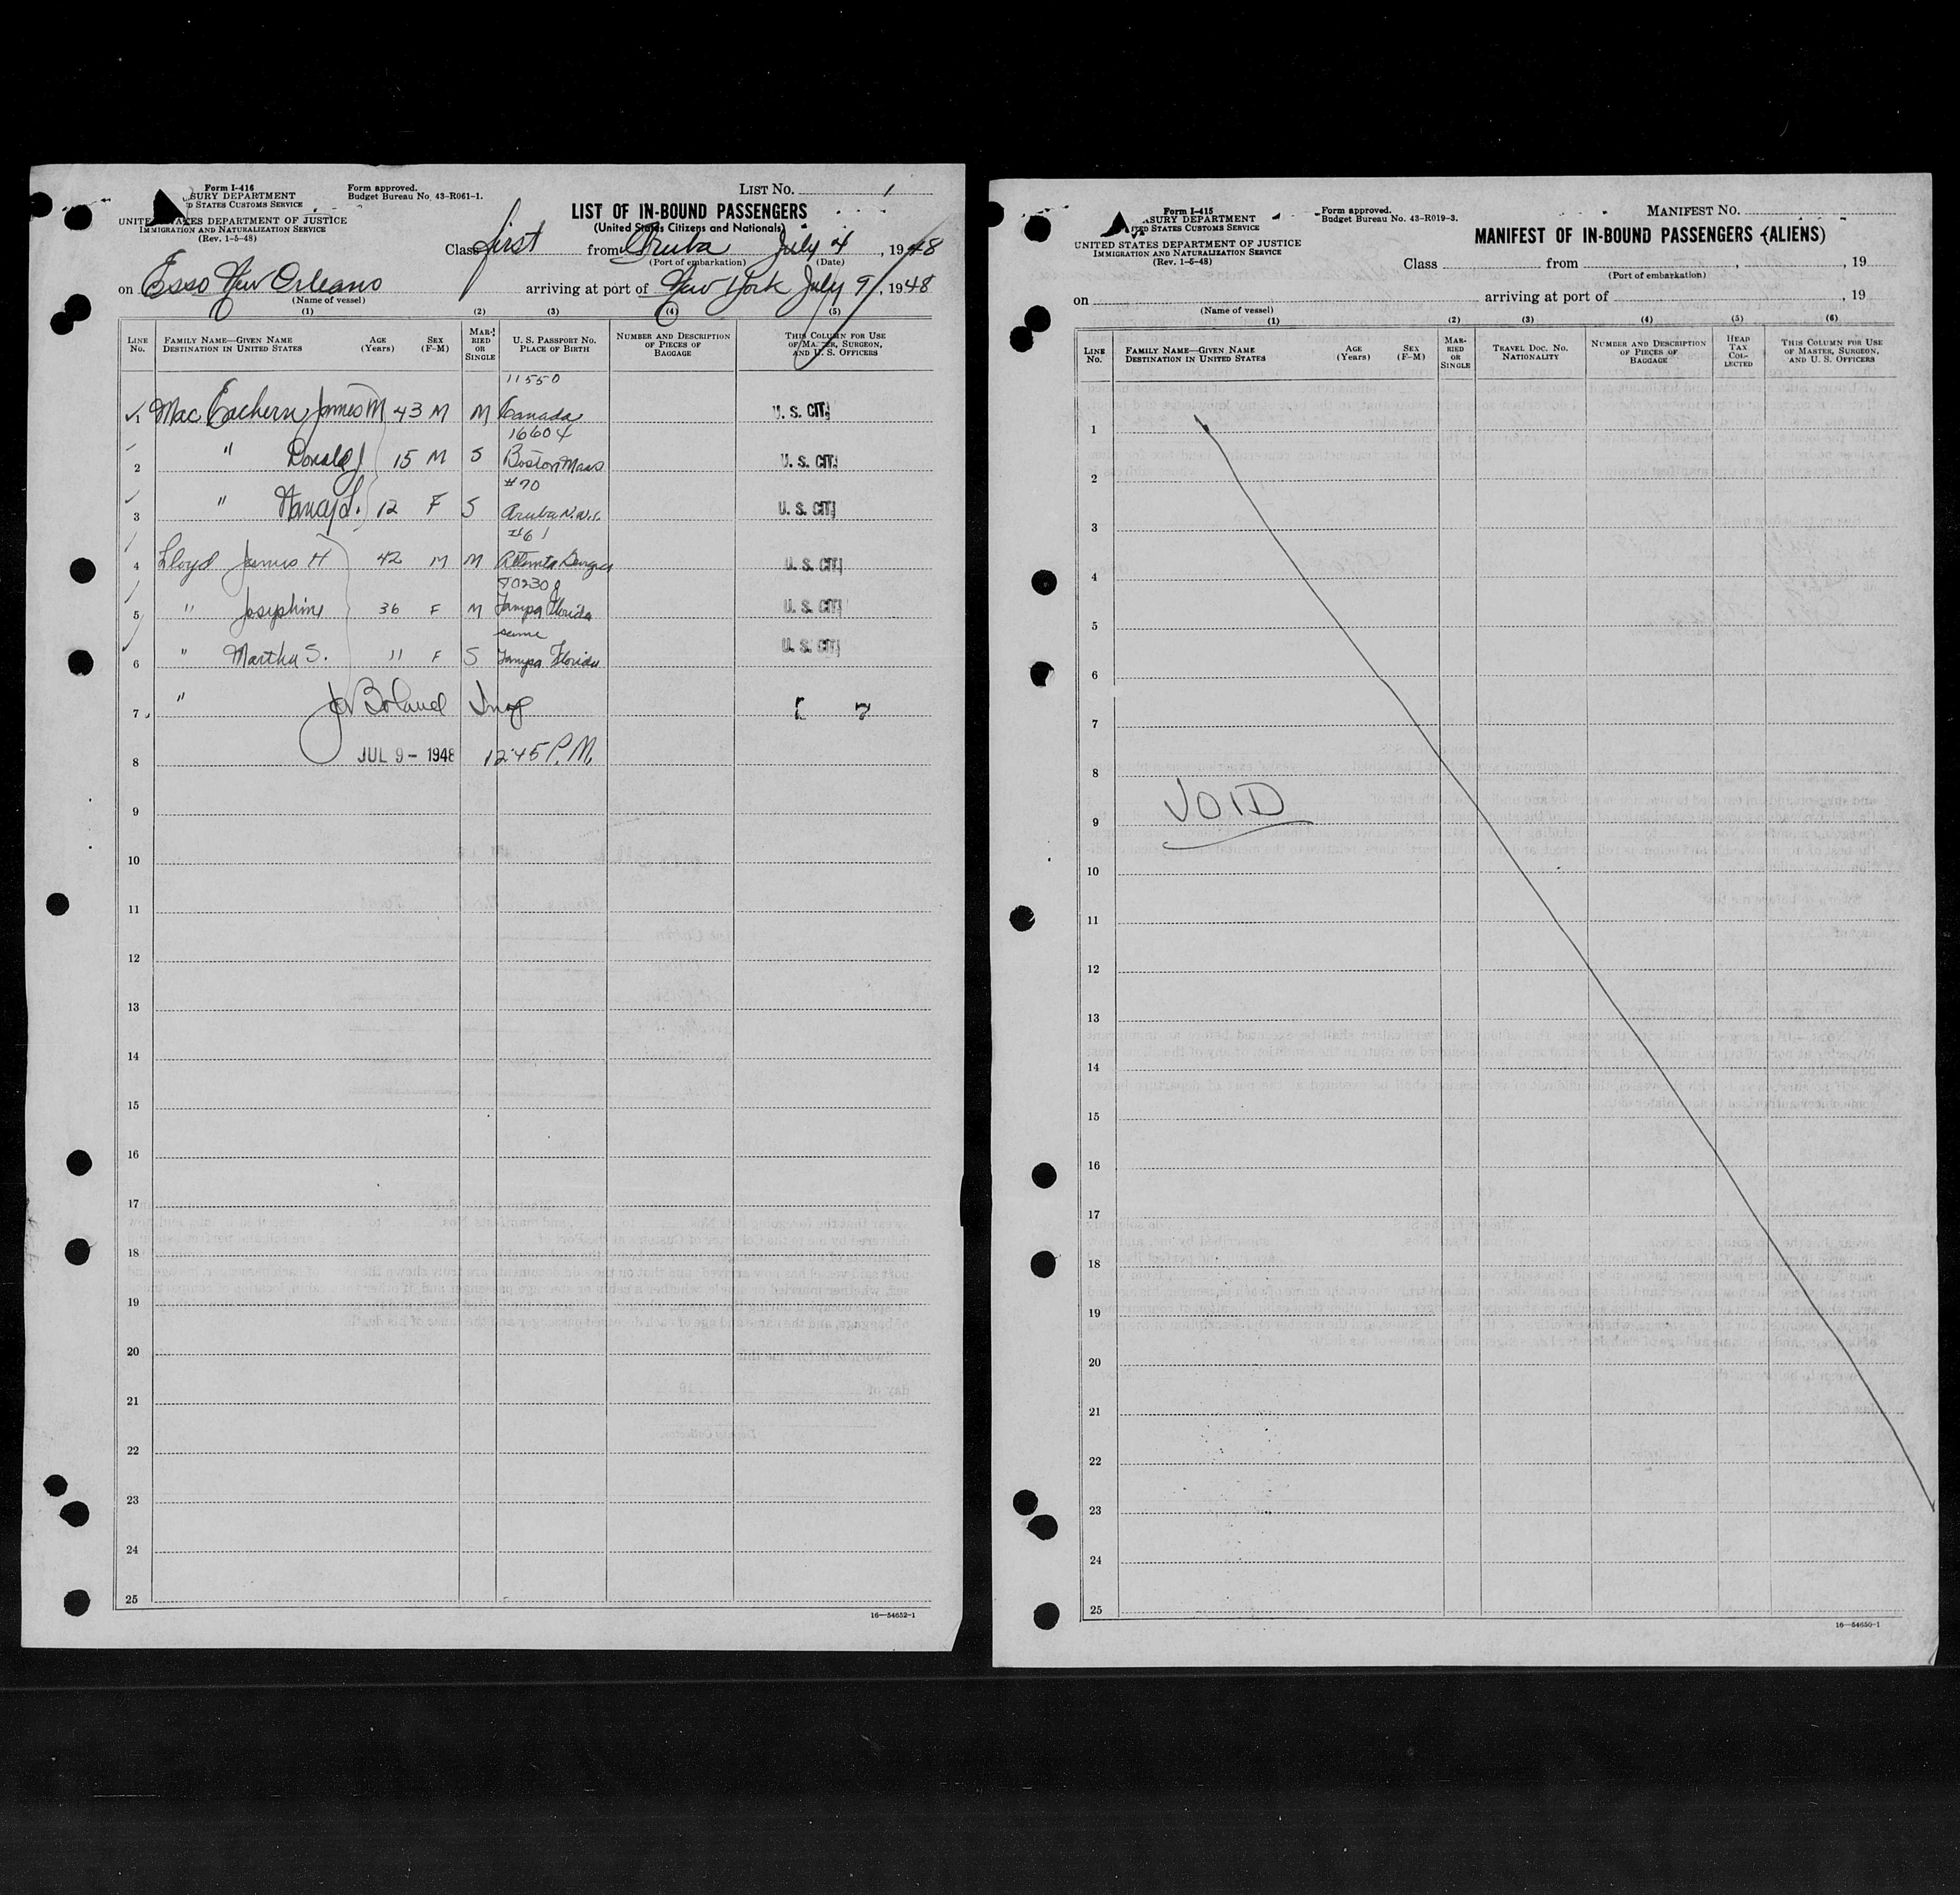 Form I-416
SURY DEPARTMENT
D STATES CUSTOMS SERVICE
UNITE STATES DEPARTMENT OF JUSTICE
IMMIGRATION AND NATURALIZATION SERVICE
(Rev. 1-5-48)
Form approved.
Budget Bureau No. 43-R061-1.
LIST NO. 1
LIST OF IN-BOUND PASSENGERS
(United States Citizens and Nationals)
Class first from Aruba July 4, 1948
(Port of embarkation) (Date)
on Esso New Orleans arriving at port of New York July 9, 1948
(Name of vessel)
(1) (2) (3) (4) (5)
LINE No. FAMILY NAME—GIVEN NAME DESTINATION IN UNITED STATES AGE (Years) SEX (F-M) MARRIED OR SINGLE U. S. PASSPORT NO. PLACE OF BIRTH NUMBER AND DESCRIPTION OF PIECES OF BAGGAGE THIS COLUMN FOR USE OF MASTER, SURGEON, AND U. S. OFFICERS
11550
1 Mac Eachern James M 43 M M Canada U. S. CIT.
16604
2 " Donald J 15 M S Boston Mass U. S. CIT.
#70
3 " Nancy L. 12 F S Aruba N.W.I. U. S. CIT.
#61
4 Lloyd James H 42 M M Atlanta U. S. CIT.
5 " Josephine 36 F M Tampa Florida U. S. CIT.
same
6 " Martha S. 11 F S Tampa Florida U. S. CIT.
7 " Boland Insp
8 JUL 9 - 1948 12:45 P.M.
9
10
11
12
13
14
15
16
17
18
19
20
21
22
23
24
25
16—54652-1
Form I-415
ASURY DEPARTMENT
ITED STATES CUSTOMS SERVICE
UNITED STATES DEPARTMENT OF JUSTICE
IMMIGRATION AND NATURALIZATION SERVICE
(Rev. 1-5-48)
Form approved.
Budget Bureau No. 43-R019-3.
MANIFEST NO.
MANIFEST OF IN-BOUND PASSENGERS (ALIENS)
Class from , , 19
(Port of embarkation)
on arriving at port of , 19
(Name of vessel)
(1) (2) (3) (4) (5) (6)
LINE No. FAMILY NAME—GIVEN NAME DESTINATION IN UNITED STATES AGE (Years) SEX (F-M) MARRIED OR SINGLE TRAVEL DOC. NO. NATIONALITY NUMBER AND DESCRIPTION OF PIECES OF BAGGAGE HEAD TAX COLLECTED THIS COLUMN FOR USE OF MASTER, SURGEON, AND U. S. OFFICERS
1
2
3
4
5
6
7
8
VOID
9
10
11
12
13
14
15
16
17
18
19
20
21
22
23
24
25
16—54650-1